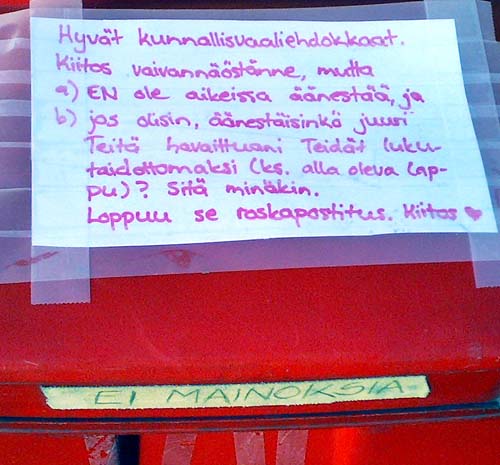 Hyvät kunnallisvaaliehdokkaat.
Kiitos vaivannäöstänne, mutta
a) EN ole aikeissa äänestää, ja
b) jos olisin, äänestäisinkö juuri
Teitä havaittuani Teidät luku-
taidottomaksi (ks. alla oleva lap-
pu)? Sitä minäkin.
Loppuu se roskapostitus. Kiitos ♥
EI MAINOKSIA